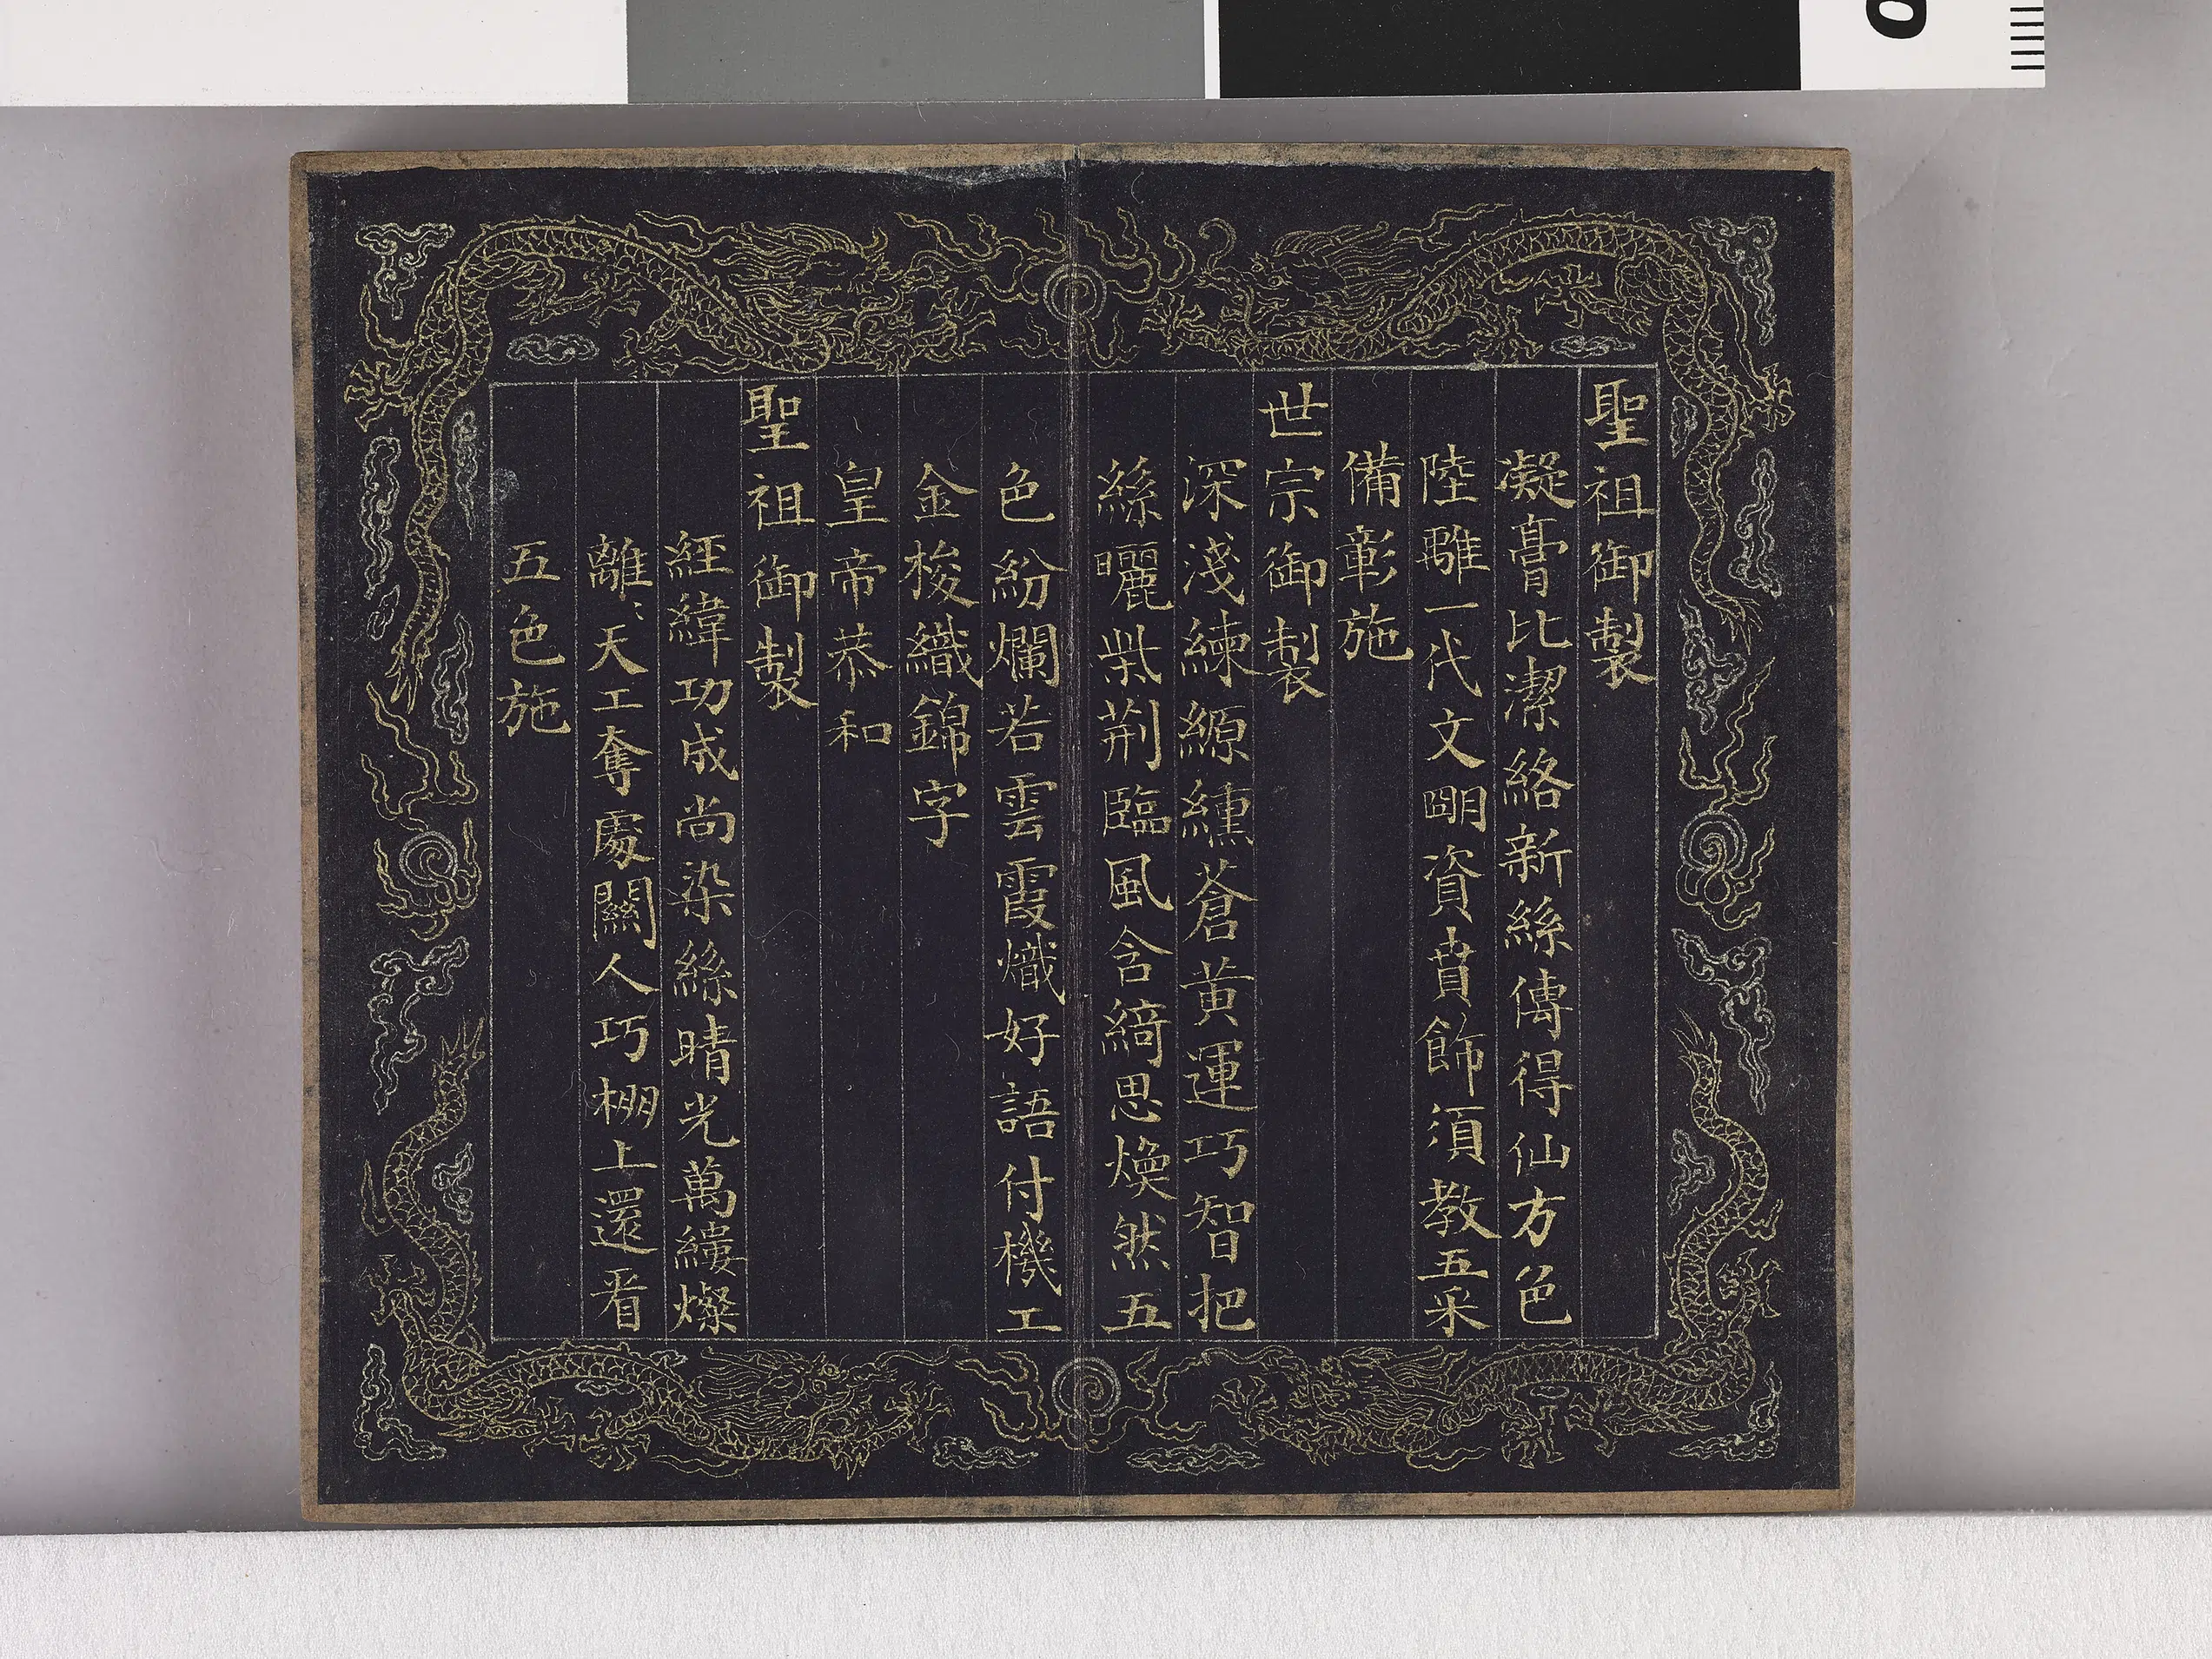 聖祖御製
凝膏比潔絡新絲傳得仙方色
陸離一代文明資賁飾須教五采
備彰施
世宗御製
深淺練縓纁蒼黃運巧智把
絲曬柴荆臨風含綺思煥然五
色紛爛若雲霞熾好語付機工
金梭織錦字
皇帝恭和
聖祖御製
經緯功成尚染絲晴光萬縷燦
離〻天工奪處關人巧棚上還看
五色施
0